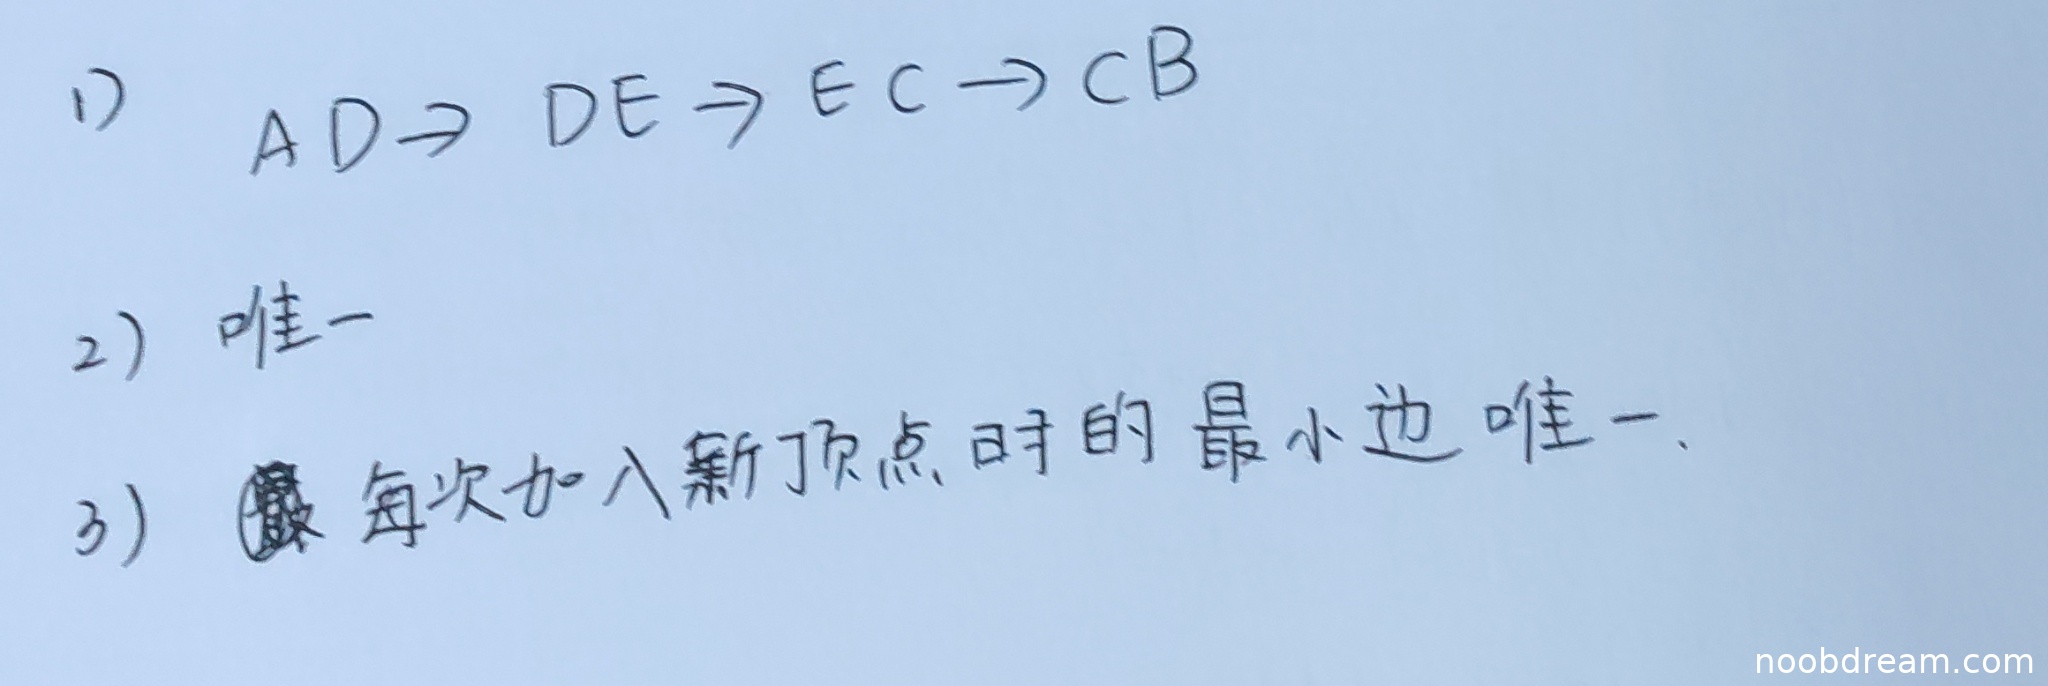 1) AD → DE → EC → CB
2) 唯一
3) 每次加入新顶点时的最小边唯一.
noobdream.com